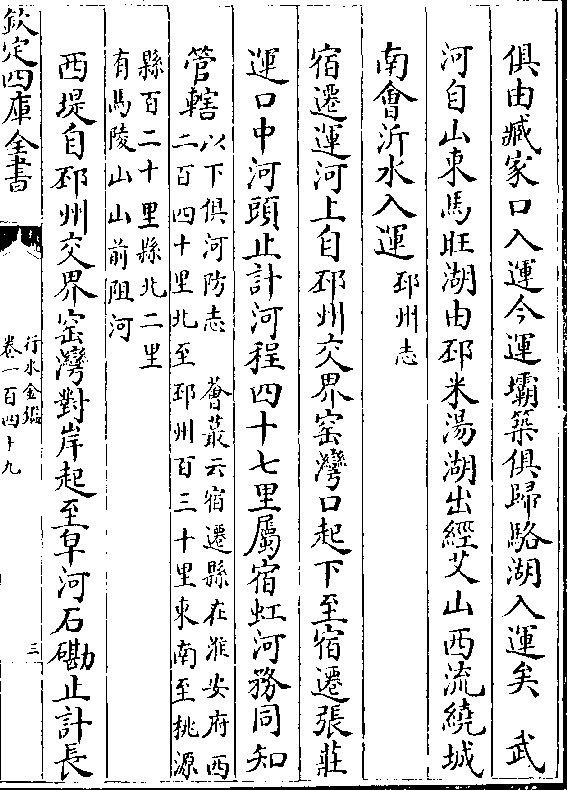 俱由臧家口入運今運壩築俱歸駱湖入運矣　武
河自山東馬旺湖由邳米湯湖出經艾山西流繞城
南會沂水入運邳州志
宿遷運河上自邳州交界窑灣口起下至宿遷張莊
運口中河頭止計河程四十七里屬宿虹河務同知
管轄以下俱河防志　薈蕞云宿遷縣在淮安府西
二百四十里北至邳州百三十里東南至桃源
縣百二十里縣北二里
有馬陵山山前阻河
西堤自邳州交界窑灣對岸起至皁河石磡止計長
欽定四庫全書
行水金鑑
卷一百四十九
三